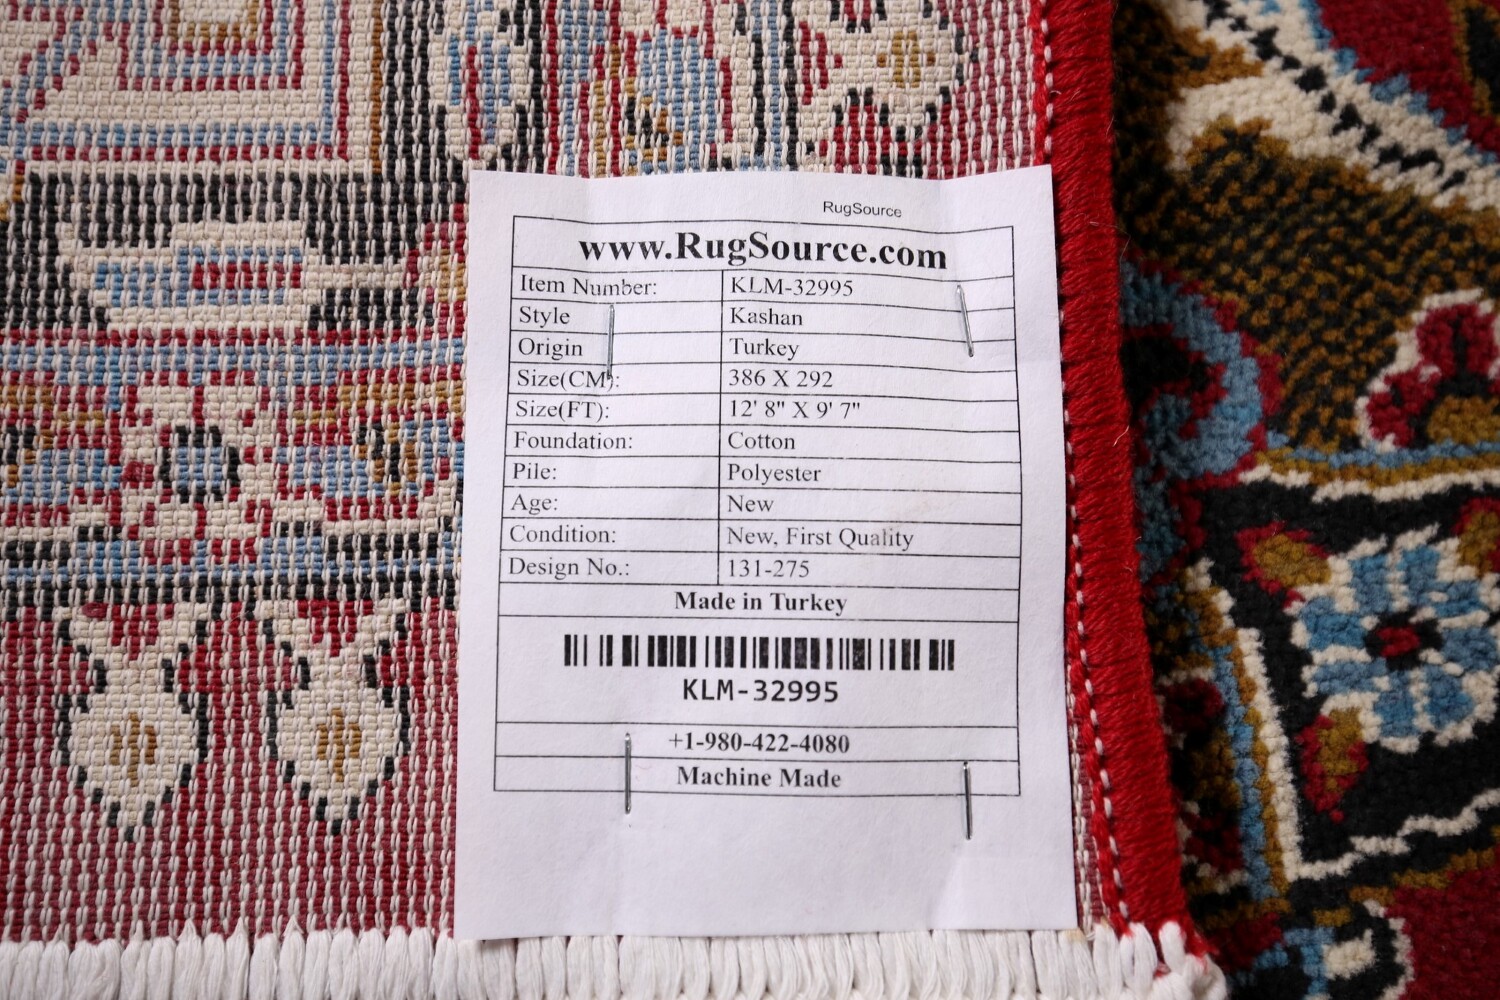 RugSource
www.RugSource.com
Item Number: KLM-32995
Style Kashan
Origin Turkey
Size(CM): 386 X 292
Size(FT): 12' 8" X 9' 7"
Foundation: Cotton
Pile: Polyester
Age: New
Condition: New, First Quality
Design No.: 131-275
Made in Turkey
KLM-32995
+1-980-422-4080
Machine Made